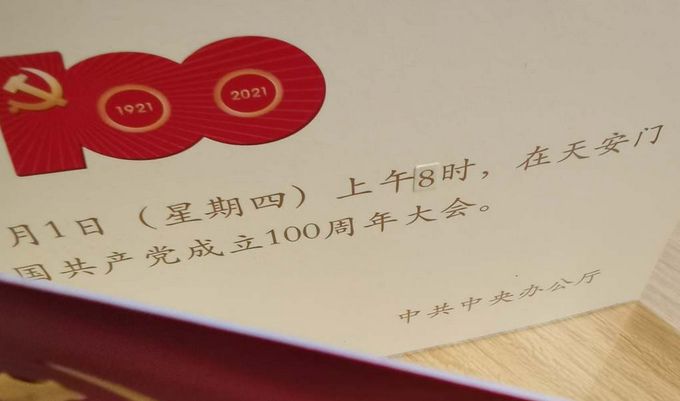 100
1921
2021
月1日（星期四）上午8时，在天安门
国共产党成立100周年大会。
中共中央办公厅